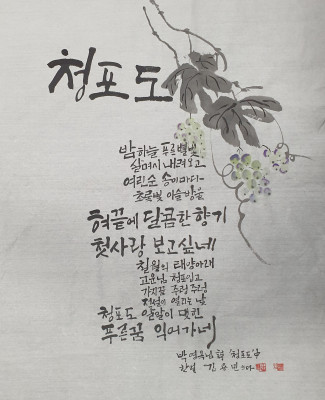 청포도
밤하늘 푸른별빛
살며시 내려오고
여린순 송이마다
초록빛 이슬방울
혀끝에 달콤한 향기
첫사랑 보고싶네
칠월의 태양아래
고운님 청포입고
가지끝 주렁주렁
전설이 열리는 날
청포도 알알이 맺힌
푸른꿈 익어가네
박영옥님 詩 '청포도' 中